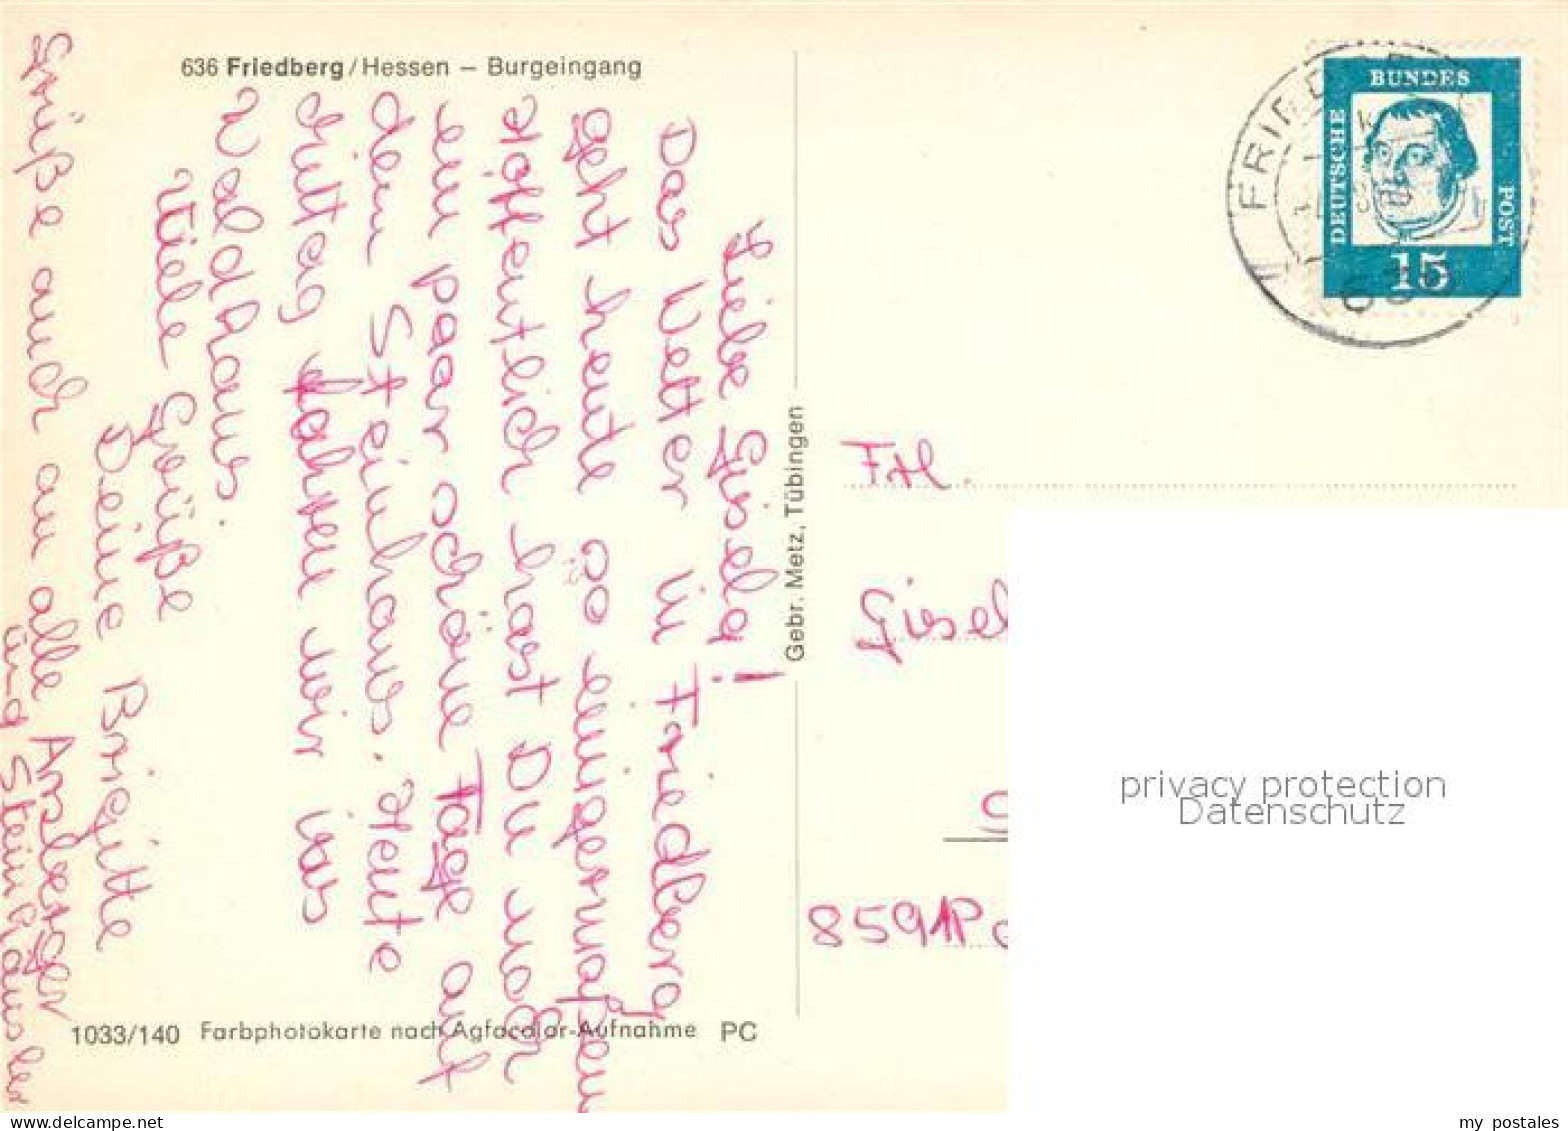 636 Friedberg/Hessen – Burgeingang
Liebe Gisela!
Das Wetter in Friedberg
geht heute so einigermaßen
Hoffentlich hast Du noch
ein paar schöne Tage auf
dem Steinhaus. Heute
mittag fahren wir ins
Waldhaus.
Viele Grüße
Deine Brigitte
Grüße auch an alle Arzberger
u-g Steinhäusler
1033/140 Farbphotokarte nach Agfacolor-Aufnahme PC
Gebr. Metz, Tübingen
DEUTSCHE BUNDES POST
15
Frl.
Giesel
8591 P
privacy protection
Datenschutz
my postales